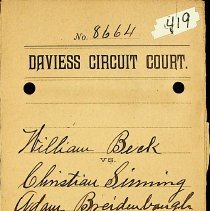 419
No. 8664
DAVIESS CIRCUIT COURT.
William Beck
VS.
Christian Sinning
Adam Breidenbaugh